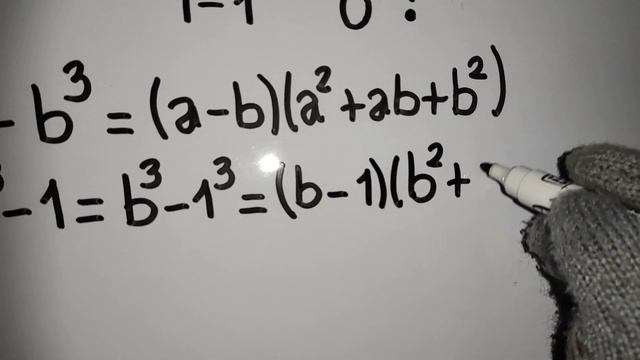 1-1 0 ?
- b³ = (a-b)(a²+ab+b²)
-1 = b³-1³ = (b-1)(b²+